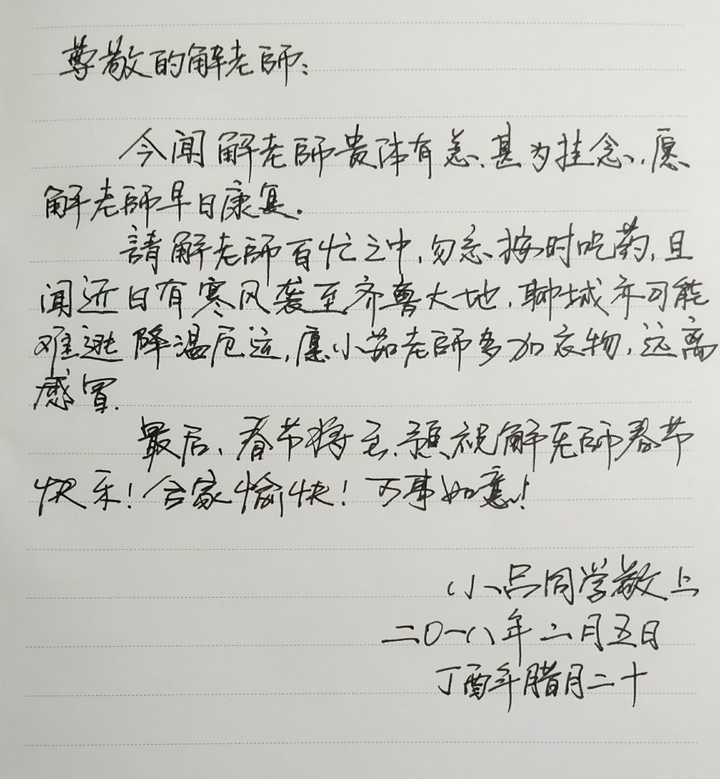 尊敬的解老師：
今闻解老師贵体有恙、甚为挂念，愿
解老師早日康复.
請解老師百忙之中，勿忘按时吃药，且
闻近日有寒风袭至齐鲁大地，聊城亦可能
难逃降温厄运，愿小茹老師多加衣物，远离
感冒.
最后、春节将至、預祝解老師春节
快乐！合家愉快！万事如意！
小吕同学敬上
二〇一八年二月五日
丁酉年腊月二十